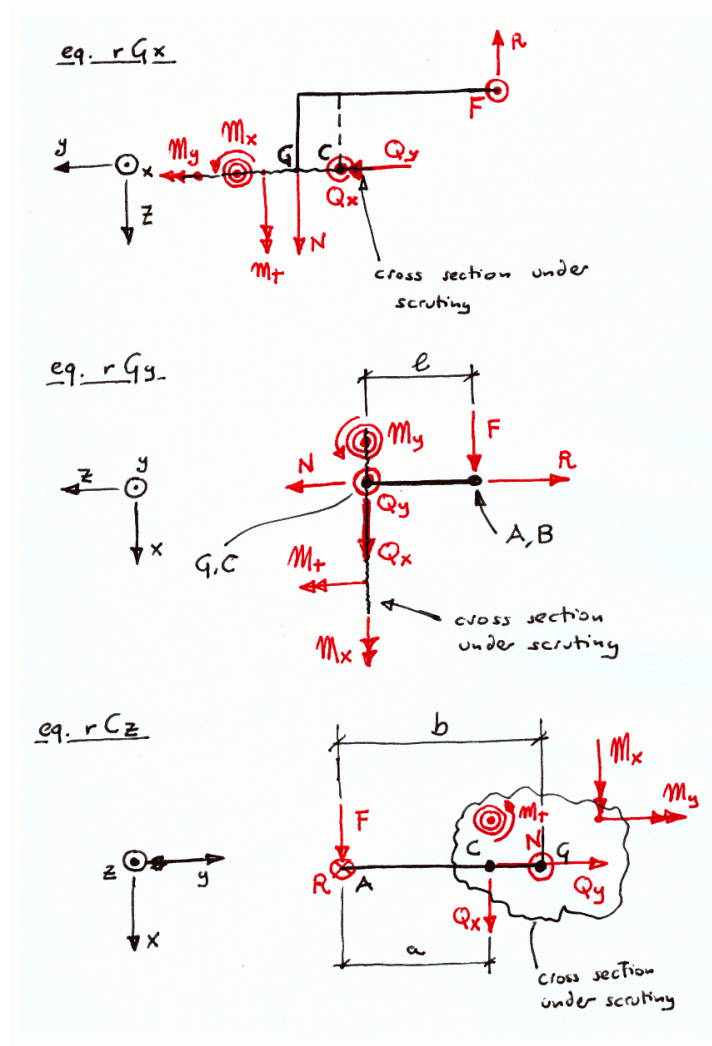 eq. r Gx
R
F
y
x
z
My
Mx
G
C
Qy
Qx
N
Mt
cross section under
scruting
eq. r Gy
l
My
F
N
R
z
y
x
Qy
Qx
A, B
G, C
Mt
cross section
under scruting
Mx
eq. r Cz
b
Mx
F
Mt
My
C
N
G
z
y
R
A
Qy
Qx
x
a
cross section
under scruting